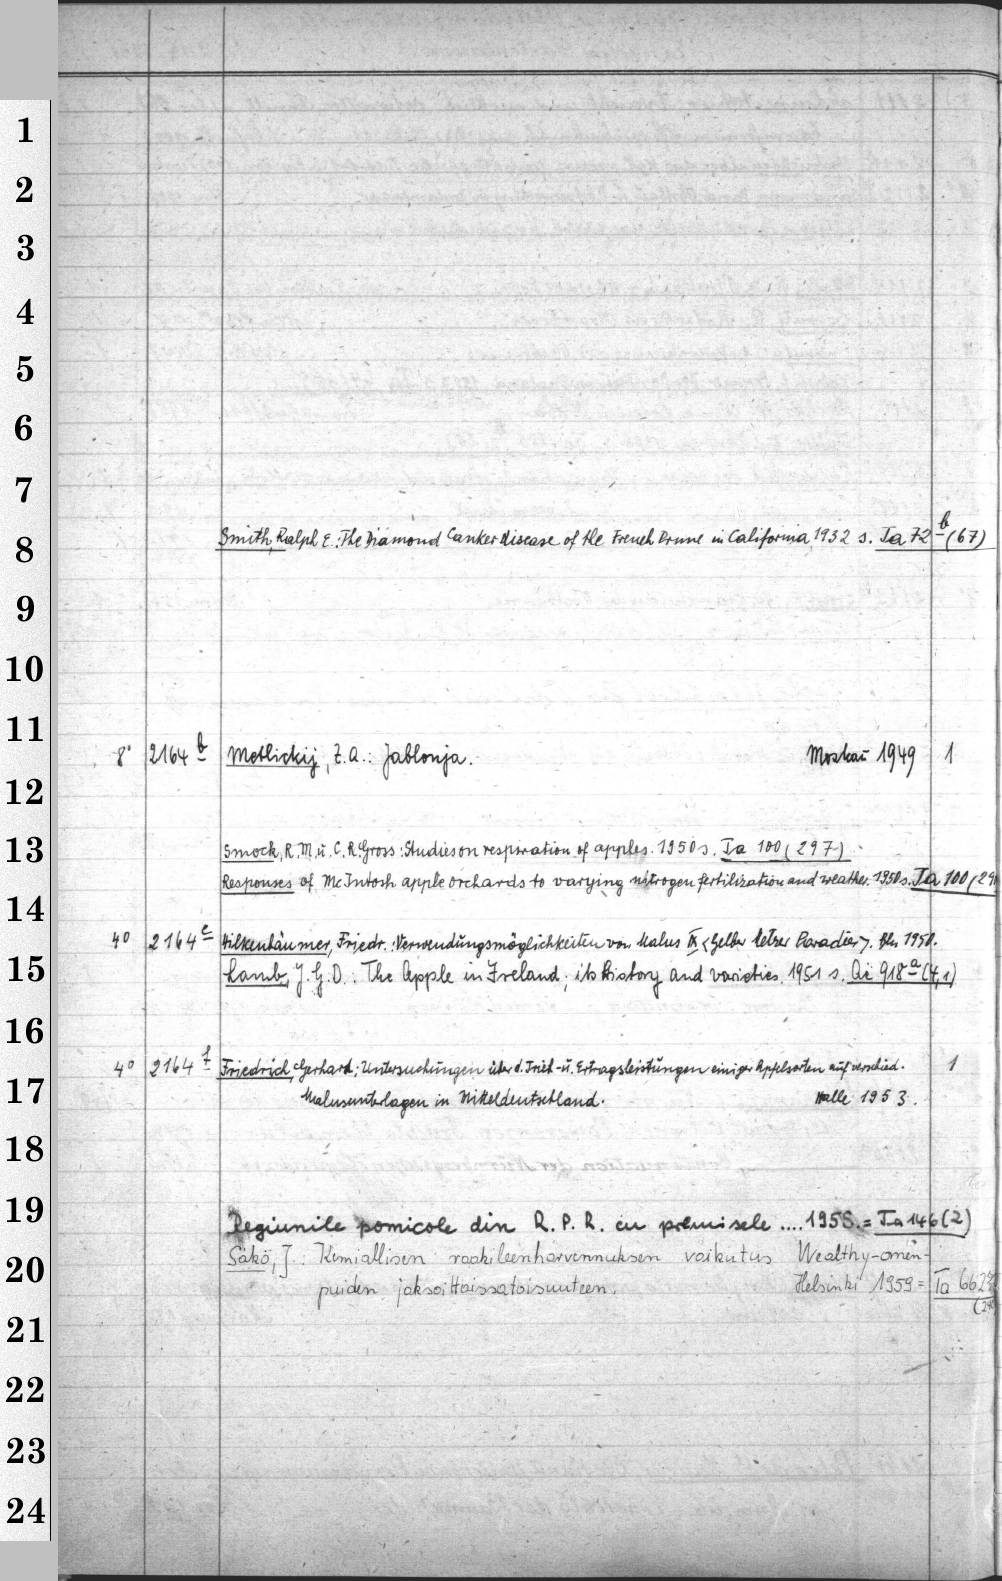 1
2
3
4
5
6
7
Smith, Ralph E.: The Diamond Canker disease of the French Prune in California, 1932 s. Ta 72 b (67)
8
9
10
11
8° 2164 b Metlickij, Z. A.: Jablonja. Moskau 1949 1
12
13
Smock, R. M. u. C. R. Gross: Studies on respiration of apples. 1950 s. Ta 100 (297)
Responses of McIntosh apple orchards to varying nitrogen fertilization and weather. 1950 s. Ta 100 (29
14
4° 2164 e Hilkenbäumer, Friedr.: Verwendungsmöglichkeiten von Malus IX <Gelber Metzer Paradies>. Bln 1950.
15
Lamb, J. G. D.: The Apple in Ireland; its history and varieties. 1951 s. Qi 918 a (4,1)
16
4° 2164 f Friedrich, Gerhard: Untersuchungen über d. Trieb- u. Ertragsleistungen einiger Apfelsorten auf verschied. 1
17
Malusunterlagen in Mitteldeutschland. Halle 1953.
18
19
Regiunile pomicole din R. P. R. cu premisele .... 1955. = Ta 146 (2)
Säkö, J.: Kemiallisen raakileenharvennuksen vaikutus Wealthy-omen-
20
puiden jaksoittaissatoisuuteen. Helsinki 1959 = Ta 662
21
22
23
24